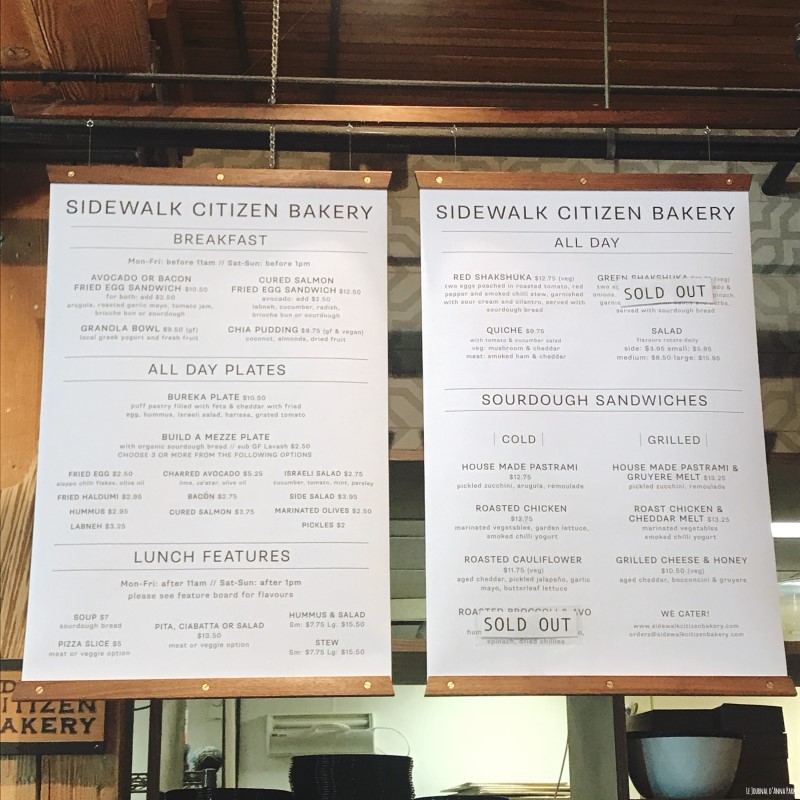 SIDEWALK CITIZEN BAKERY
BREAKFAST
Mon-Fri: before 11am // Sat-Sun: before 1pm
AVOCADO OR BACON
FRIED EGG SANDWICH $10.50
for both: add $2.50
arugula, roasted garlic mayo, tomato jam,
brioche bun or sourdough
CURED SALMON
FRIED EGG SANDWICH $12.50
avocado: add $2.50
labneh, cucumber, radish,
brioche bun or sourdough
GRANOLA BOWL $9.50 (gf)
local greek yogurt and fresh fruit
CHIA PUDDING $8.75 (gf & vegan)
coconut, almonds, dried fruit
ALL DAY PLATES
BUREKA PLATE $10.50
puff pastry filled with feta & cheddar with fried
egg, hummus, israeli salad, harissa, grated tomato
BUILD A MEZZE PLATE
with organic sourdough bread // sub GF Lavash $2.50
CHOOSE 3 OR MORE FROM THE FOLLOWING OPTIONS
FRIED EGG $2.50
aleppo chili flakes, olive oil
CHARRED AVOCADO $5.25
lime, za'atar, olive oil
ISRAELI SALAD $2.75
cucumber, tomato, mint, parsley
FRIED HALOUMI $2.95
BACON $3.75
SIDE SALAD $3.95
HUMMUS $2.95
CURED SALMON $3.75
MARINATED OLIVES $2.50
LABNEH $3.25
PICKLES $2
LUNCH FEATURES
Mon-Fri: after 11am // Sat-Sun: after 1pm
please see feature board for flavours
SOUP $7
sourdough bread
PITA, CIABATTA OR SALAD
$13.50
meat or veggie option
HUMMUS & SALAD
Sm: $7.75 Lg: $15.50
PIZZA SLICE $5
meat or veggie option
STEW
Sm: $7.75 Lg: $15.50
SIDEWALK CITIZEN BAKERY
ALL DAY
RED SHAKSHUKA $12.75 (veg)
two eggs poached in roasted tomato, red
pepper and smoked chili stew, garnished
with sour cream and cilantro, served with
sourdough bread
GREEN SHAKSHUKA (veg)
SOLD OUT
served with sourdough bread
QUICHE $9.75
with tomato & cucumber salad
veg: mushroom & cheddar
meat: smoked ham & cheddar
SALAD
flavours rotate daily
side: $3.95 small: $5.95
medium: $8.50 large: $15.95
SOURDOUGH SANDWICHES
COLD
GRILLED
HOUSE MADE PASTRAMI
$12.75
pickled zucchini, arugula, remoulade
HOUSE MADE PASTRAMI &
GRUYERE MELT $13.25
pickled zucchini, remoulade
ROASTED CHICKEN
$12.75
marinated vegetables, garden lettuce,
smoked chilli yogurt
ROAST CHICKEN &
CHEDDAR MELT $13.25
marinated vegetables
smoked chilli yogurt
ROASTED CAULIFLOWER
$11.75 (veg)
aged cheddar, pickled jalapeño, garlic
mayo, butterleaf lettuce
GRILLED CHEESE & HONEY
$10.50 (veg)
aged cheddar, bocconcini & gruyere
ROASTED BROCCOLI & AVO
SOLD OUT
spinach, dried chillies
WE CATER!
www.sidewalkcitizenbakery.com
orders@sidewalkcitizenbakery.com
CITIZEN
BAKERY
LE JOURNAL D'ANNA PARK